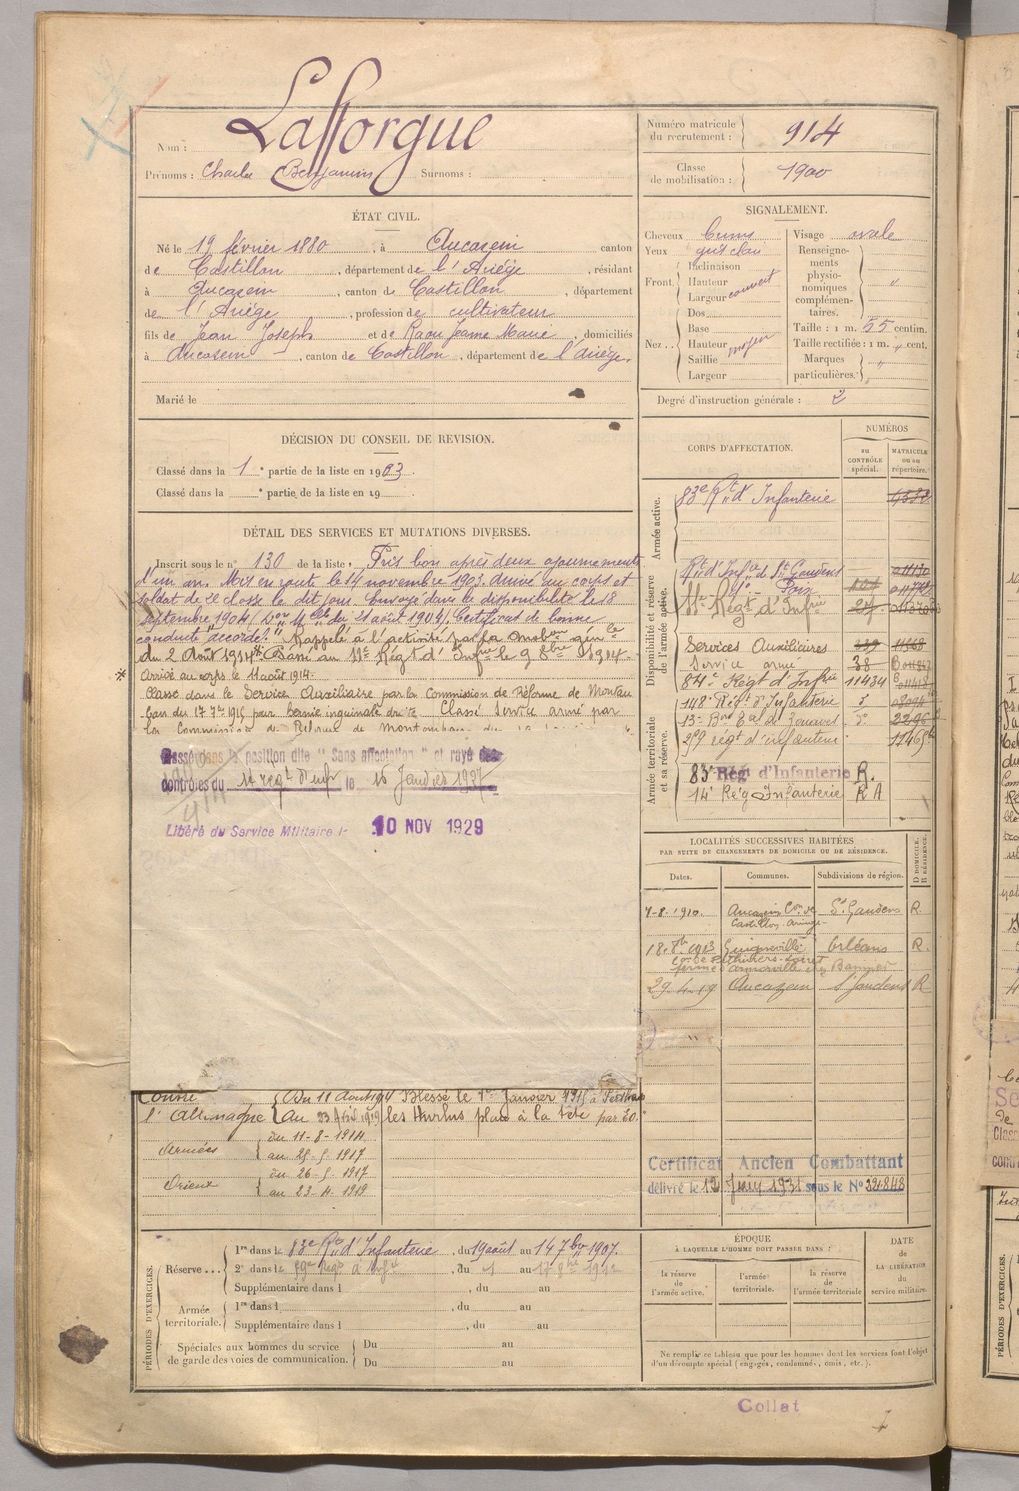 Nom : Lafforgue
Prénoms : Charles Benjamin Surnoms :
Numéro matricule du recrutement : 914
Classe de mobilisation : 1900
ÉTAT CIVIL.
Né le 19 février 1880, à Aucazein canton
de Castillon, département de l'Ariège, résidant
à Aucazein, canton de Castillon, département
de l'Ariège, profession de cultivateur
fils de Jean Joseph et de Raou Jeanne Marie, domiciliés
à Aucazein, canton de Castillon, département de l'Ariège.
Marié le
SIGNALEMENT.
Cheveux bruns
Yeux gris clair
Front. Inclinaison
Hauteur
Largeur couvert
Nez .. Dos
Base
Hauteur moyen
Saillie
Largeur
Visage ovale
Renseignements physionomiques complémentaires. "
Taille : 1 m. 55 centim.
Taille rectifiée : 1 m. " cent.
Marques particulières. "
Degré d'instruction générale : 2
DÉCISION DU CONSEIL DE REVISION.
Classé dans la 1e partie de la liste en 1903.
Classé dans la e partie de la liste en 19
DÉTAIL DES SERVICES ET MUTATIONS DIVERSES.
Inscrit sous le n° 130 de la liste. Pris bon après deux ajournements
d'un an. Mis en route le 14 novembre 1903. arrivé au corps et
soldat de 2e classe le dit jour. Envoyé dans la disponibilité le 18
septembre 1904, du 21 août 1904. Certificat de bonne
conduite "accordé". Rappelé à l'activité par la mobon génle
du 2 Août 1914. Passé au 11e Régt d'Infrie le 9 8bre 1914.
* Arrivé au corps le 11 août 1914.
Classé dans le Service Auxiliaire par la Commission de Réforme de Montau
-ban du 17 7bre 1915 pour hernie inguinale droite. Classé service armé par
la Commission de Réforme de Montauban
Classé dans la position dite "Sans affectation" et rayé des
contrôles du 14 regt d'infr le 16 Janvier 1927
Libéré du Service Militaire le 10 NOV 1929
CORPS D'AFFECTATION.
NUMÉROS
au CONTRÔLE spécial.
MATRICULE ou au répertoire.
Armée active.
83e Rt d'Infanterie
Disponibilité et réserve de l'armée active.
Rt d'Infie de St Gaudens 011130
11e Régt d'Infrie
Services Auxiliaires 239 11568
Service armé 38
84e Régt d'Infrie 11434
Armée territoriale et sa réserve.
148e Régt d'Infanterie
13e Bon de Zouaves 2296
209 régt d'infanterie
83e Régt d'Infanterie R.
14e Rég Infanterie R A
LOCALITÉS SUCCESSIVES HABITÉES
PAR SUITE DE CHANGEMENTS DE DOMICILE OU DE RÉSIDENCE.
Dates. Communes. Subdivisions de région. D DOMICILE. R RÉSIDENCE.
7-8-1910. Aucazein Con de Castillon Ariège St Gaudens R.
18.8bre 1913 Guigneville Orléans R.
29-4-19 Aucazein St Gaudens R
Contre l'Allemagne Du 11 Août 1914 Au 23 Avril 1919
Blessé le 1er Janvier 1915 à Perthes
les Hurlus plaie à la tête par éo.
Armées du 11-8-1914 au 25-5-1917
Orient du 26-5-1917 au 23-4-1919
Certificat Ancien Combattant
délivré le 12 Janv 1931 sous le N° 224848
PÉRIODES D'EXERCICES.
Réserve ... 1re dans le 83e Rt d'Infanterie, du 19 août au 14 7bre 1907.
2e dans le, du 1 au 17 1912
Supplémentaire dans l, du au
Armée territoriale. 1re dans l, du au
Supplémentaire dans l, du au
Spéciales aux hommes du service de garde des voies de communication. Du au
Du au
ÉPOQUE
À LAQUELLE L'HOMME DOIT PASSER DANS :
la réserve de l'armée active.
l'armée territoriale.
la réserve de l'armée territoriale
DATE de LA LIBÉRATION du service militaire.
Ne remplir ce tableau que pour les hommes dont les services font l'objet
d'un décompte spécial (engagés, condamnés, omis, etc.).
Collat